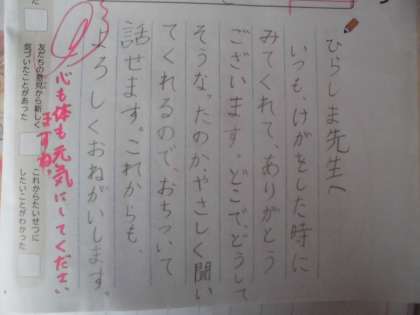 ひらしま先生へ
いつも、けがをした時に
みてくれて、ありがとう
ございます。どこで、どうして
そうなったのか、やさしく聞い
てくれるので、おちついて
話せます。これからも、
よろしくおねがいします。
心も体も元気にしてください
ますね。
友だちの意見から新しく
気づいたことがあった
これからたいせつに
したいことがわかった